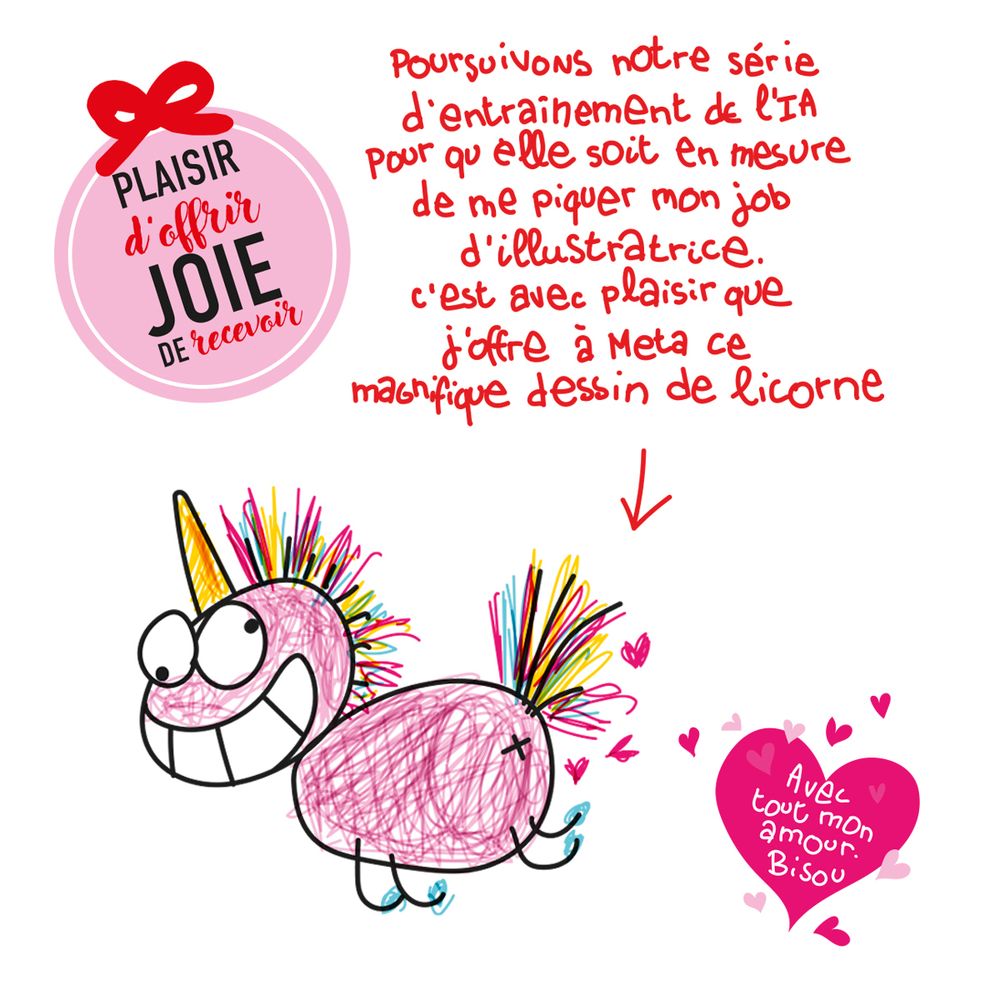 PLAISIR
d'offrir
JOIE
DE recevoir
Poursuivons notre série
d'entraînement de l'IA
pour qu'elle soit en mesure
de me piquer mon job
d'illustratrice.
c'est avec plaisir que
j'offre à Meta ce
magnifique dessin de licorne
Avec
tout mon
amour.
Bisou